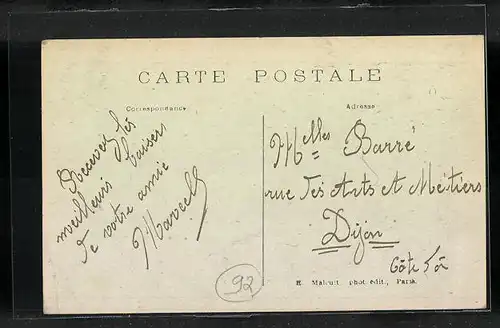 CARTE POSTALE
Correspondance
Recevez les
meilleurs baisers
de votre amie
Marcelle
92
Adresse
Melles Barré
rue des Arts et Métiers
Dijon
Côte d'Or
phot. edit., Paris.